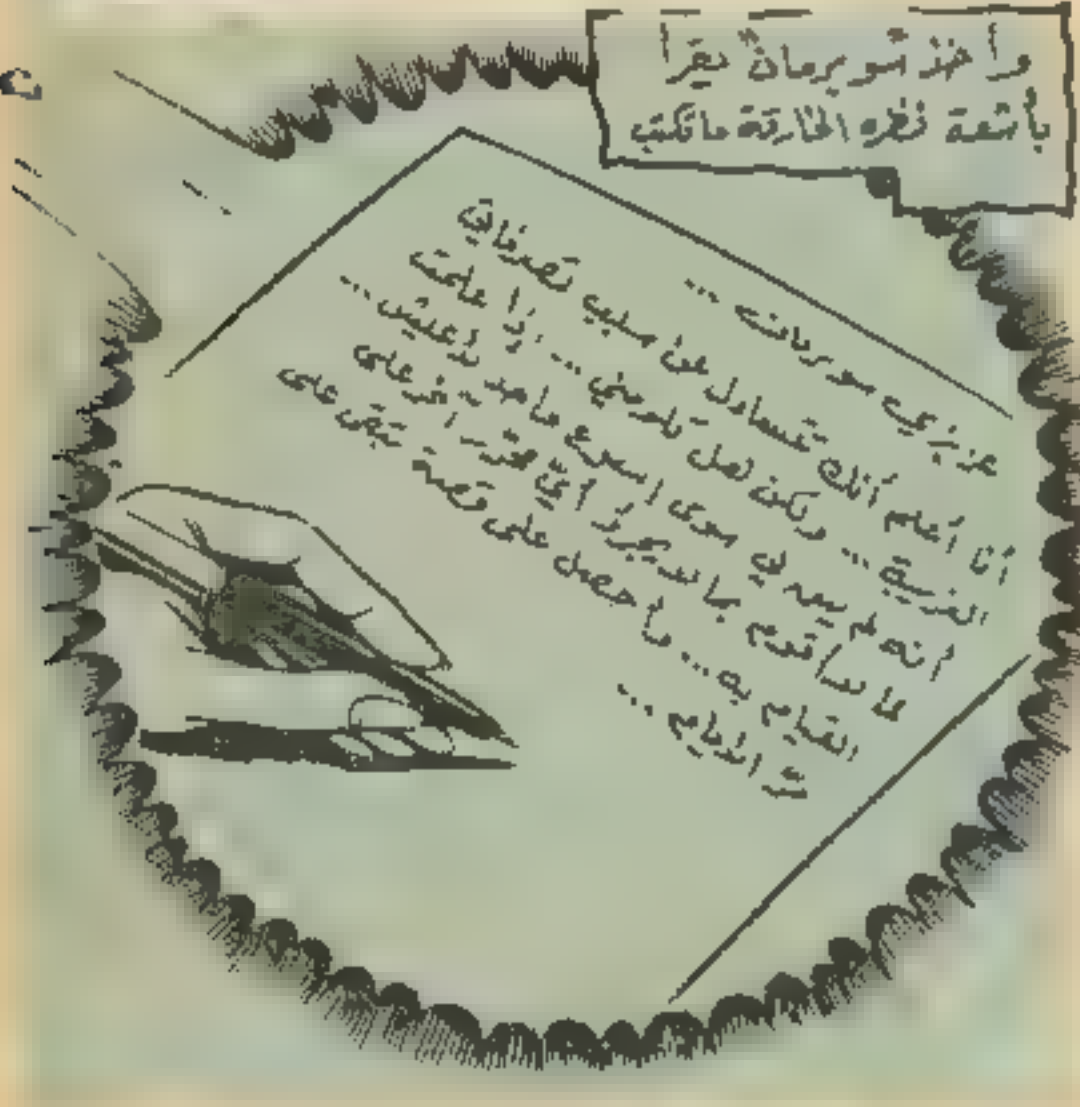 وأخذ سوبرمان يقرأ
بأشعة نظره الخارقة ما تكتب
عزيزي سوبرمان ...
أنا أعلم أنك تتساءل عن سبب تصرفاتي
الغريبة ... ولكن هل تلومني ... إذا علمت
أنه لم يبق لي سوى اسبوع واحد لأعيش ...
لذا سأقوم بما لا يجرؤ أيّ محرر آخر على
القيام به ... وأحصل على قصة تبقى على
مرّ الأيام ...